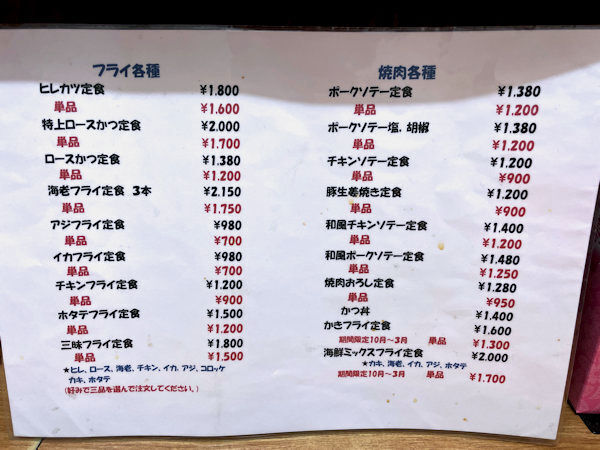 フライ各種
ヒレカツ定食 ¥1.800
単品 ¥1.600
特上ロースかつ定食 ¥2.000
単品 ¥1.700
ロースかつ定食 ¥1.380
単品 ¥1.200
海老フライ定食 3本 ¥2.150
単品 ¥1.750
アジフライ定食 ¥980
単品 ¥700
イカフライ定食 ¥980
単品 ¥700
チキンフライ定食 ¥1.200
単品 ¥900
ホタテフライ定食 ¥1.500
単品 ¥1.200
三味フライ定食 ¥1.800
単品 ¥1.500
★ヒレ、ロース、海老、チキン、イカ、アジ、コロッケ
カキ、ホタテ
(好みで三品を選んで注文してください。)
焼肉各種
ポークソテー定食 ¥1.380
単品 ¥1.200
ポークソテー塩、胡椒 ¥1.380
単品 ¥1.200
チキンソテー定食 ¥1.200
単品 ¥900
豚生姜焼き定食 ¥1.200
単品 ¥900
和風チキンソテー定食 ¥1.400
単品 ¥1.200
和風ポークソテー定食 ¥1.480
単品 ¥1.250
焼肉おろし定食 ¥1.280
単品 ¥950
かつ丼 ¥1.400
かきフライ定食 ¥1.600
期間限定10月~3月 単品 ¥1.300
海鮮ミックスフライ定食 ¥2.000
★カキ、海老、イカ、アジ、ホタテ
期間限定10月~3月 単品 ¥1.700